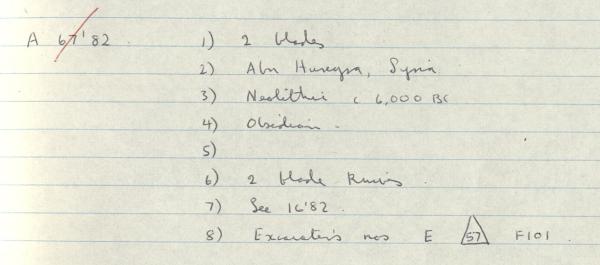 A 67'82. 1) 2 blades
2) Abu Hureyra, Syria
3) Neolithic c 6,000 BC
4) Obsidian.
5)
6) 2 blade knives.
7) See 16'82.
8) Excavator's nos E 57 F101.